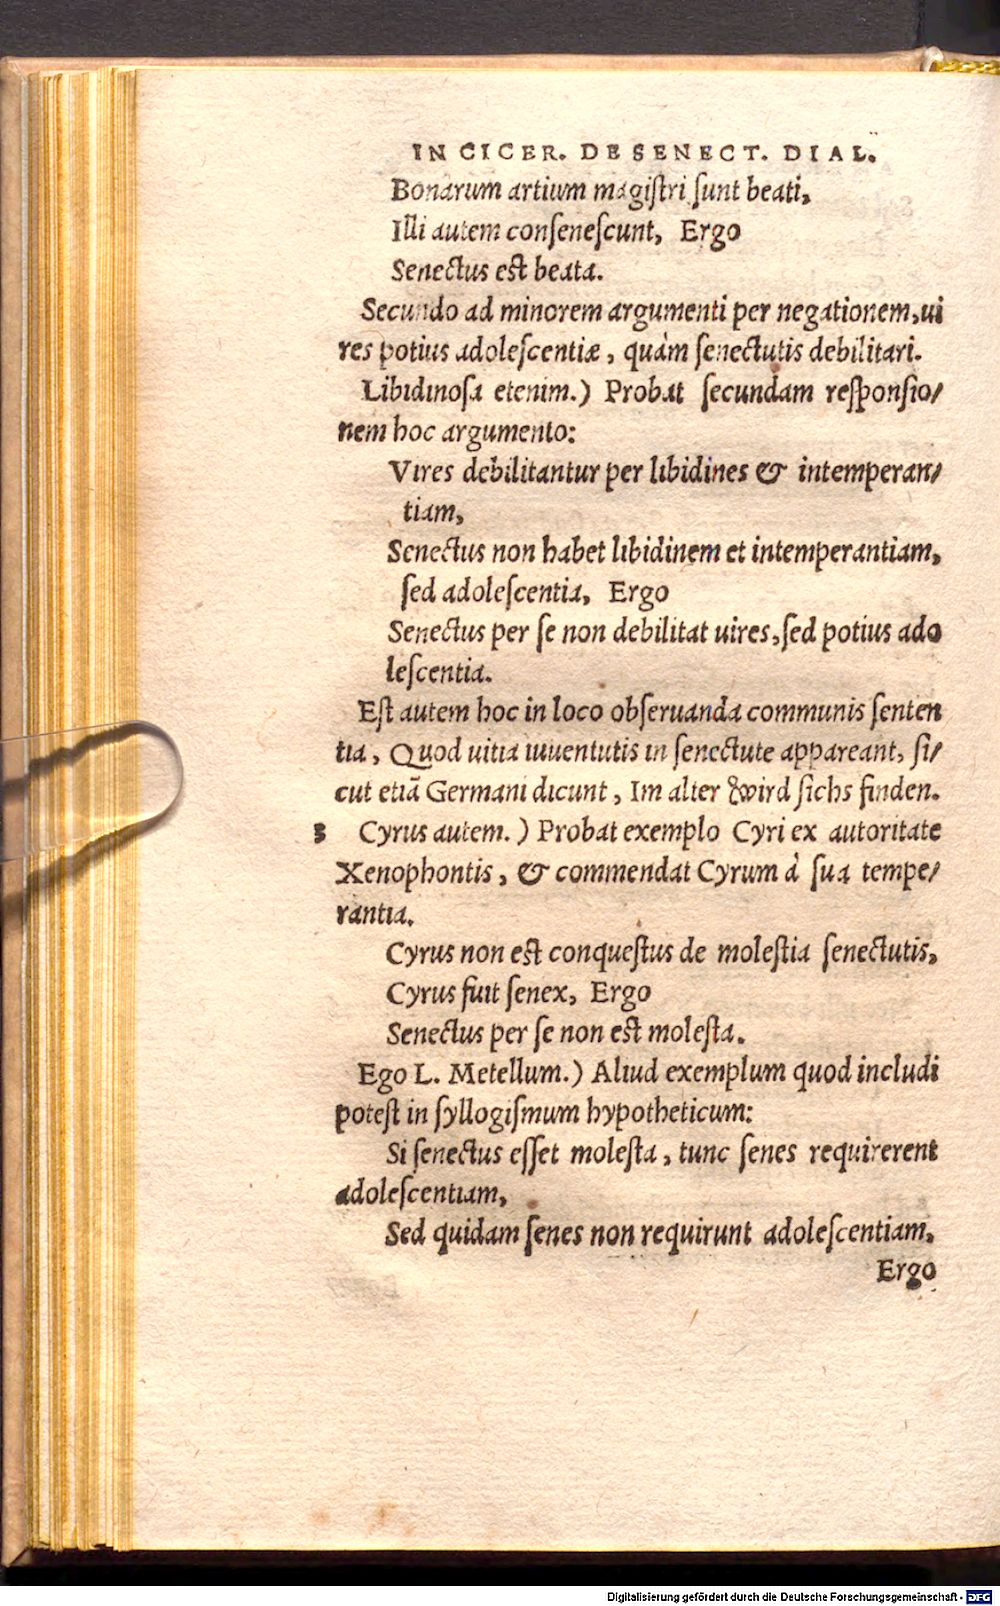 IN CICER. DE SENECT. DIAL.
Bonarum artium magiſtri ſunt beati,
Illi autem conſeneſcunt, Ergo
Senectus eſt beata.
Secundo ad minorem argumenti per negationem, ui
res potius adoleſcentiæ, quàm ſenectutis debilitari.
Libidinoſa etenim.) Probat ſecundam reſponſio/
nem hoc argumento:
Vires debilitantur per libidines & intemperan/
tiam,
Senectus non habet libidinem et intemperantiam,
ſed adoleſcentia, Ergo
Senectus per ſe non debilitat uires, ſed potius ado
leſcentia.
Eſt autem hoc in loco obſeruanda communis ſenten
tia, Quod uitia iuuentutis in ſenectute appareant, ſi/
cut etiã Germani dicunt, Im alter wird ſichs finden.
3 Cyrus autem.) Probat exemplo Cyri ex autoritate
Xenophontis, & commendat Cyrum à ſua tempe/
rantia.
Cyrus non eſt conqueſtus de moleſtia ſenectutis,
Cyrus fuit ſenex, Ergo
Senectus per ſe non eſt moleſta.
Ego L. Metellum.) Aliud exemplum quod includi
poteſt in ſyllogiſmum hypotheticum:
Si ſenectus eſſet moleſta, tunc ſenes requirerent
adoleſcentiam,
Sed quidam ſenes non requirunt adoleſcentiam,
Ergo
Digitalisierung gefördert durch die Deutsche Forschungsgemeinschaft - DFG